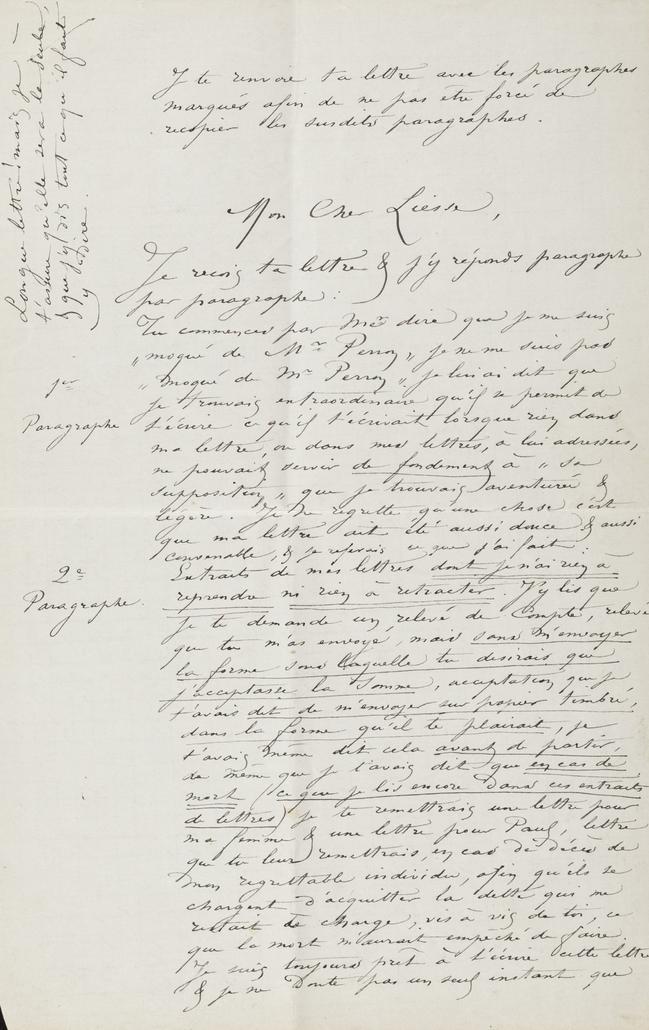 Longue lettre! mais je
t'assure qu'elle sera la seule,
& que j'y dis tout ce qu'il faut
y dire.
Je te renvoie ta lettre avec les paragraphes
marqués afin de ne pas être forcé de
recopier les susdits paragraphes.
Mon Cher Liesse,
Je reçois ta lettre & j'y réponds paragraphe
par paragraphe :
1er
Paragraphe
Tu commences par me dire que je me suis
"moqué de Mr Perroy" je ne me suis pas
"moqué de Mr Perroy" je lui ai dit que
je trouvais extraordinaire qu'il se permit de
t'écrire ce qu'il t'écrivait lorsque rien dans
ma lettre, ou dans mes lettres, à lui adressées,
ne pouvait servir de fondement à "sa
supposition" que je trouvais aventurée &
légère. Je ne regrette qu'une chose c'est
que ma lettre ait été aussi douce & aussi
convenable, & je referais ce que j'ai fait :
2e
Paragraphe.
Extraits de mes lettres dont je n'ai rien à
reprendre ni rien à retracter. J'y lis que
je te demande un relevé de Compte, relevé
que tu m'as envoyé, mais sans m'envoyer
la forme sous laquelle tu desirais que
j'acceptasse la Somme, acceptation que je
t'avais dit de m'envoyer sur papier timbré,
dans la forme qu'il te plairait, je
t'avais même dit cela avant de partir,
de même que je t'avais dit que en cas de
mort (ce que je lis encore dans ces extraits
de lettres) je te remettrais une lettre pour
ma femme & une lettre pour Paul, lettre
que tu leur remettrais, en cas de décès de
mon regrettable individu, afin qu'ils se
chargent d'acquitter la dette qui me
restait de charge, vis à vis de toi, ce
que la mort m'aurait empêché de faire.
Je suis toujours prêt à t'écrire cette lettre
& je ne Doute pas un seul instant que